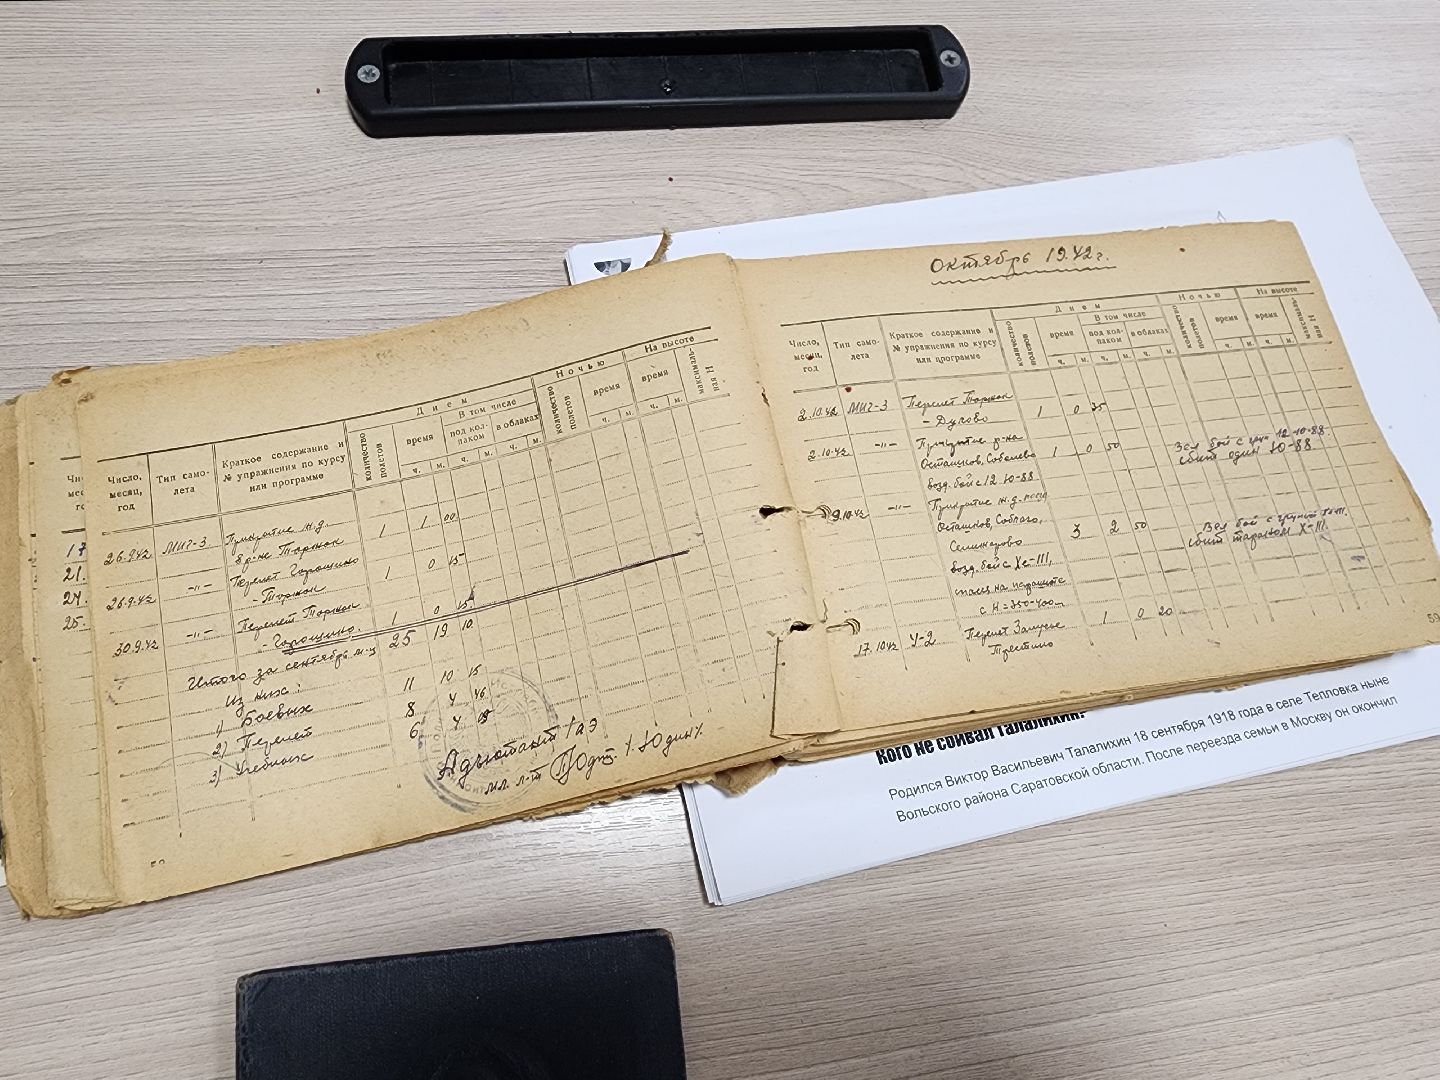 Число,
месяц,
год
Тип само-
лета
Краткое содержание и
№ упражнения по курсу
или программе
Днем
количество
полетов
время
ч. м.
В том числе
под кол-
паком
ч. м.
в облаках
ч. м.
Ночью
количество
полетов
время
ч. м.
На высоте
время
ч. м.
максималь-
ная Н
17
21.
24.
25.
26.9.42 МИГ-3 Прикрытие ж.д. 1 1 00
в р-не Торжок
26.9.42 -"- Перелет Горошино 1 0 15
- Торжок
30.9.42 -"- Перелет Торжок 1 0 15
- Горошино.
Итого за сентябрь м-ц 25 19 10
Из них:
1) Боевых 11 10 15
2) Перелет 8 4 46
3) Учебных 6 4 09
Адъютант 1 аэ
мл. л-т
Октябрь 1942 г.
Число,
месяц,
год
Тип само-
лета
Краткое содержание и
№ упражнения по курсу
или программе
Днем
количество
полетов
время
ч. м.
В том числе
под кол-
паком
ч. м.
в облаках
ч. м.
Ночью
количество
полетов
время
ч. м.
На высоте
время
ч. м.
максималь-
ная Н
2.10.42 МИГ-3 Перелет Торжок 1 0 35
- Дуково
2.10.42 -"- Прикрытие р-на 1 0 50 Вел бой с груп 12 Ю-88.
Осташков, Соблаго сбит один Ю-88
возд. бой с 12 Ю-88
9.10.42 -"- Прикрытие ж.д.
Осташков, Соблаго, 3 2 50 Вел бой с группой
сбит тараном Х-111.
возд. бой с Хе-111,
спасся на парашюте
с Н=350-400 м
17.10.42 У-2 Перелет 1 0 20
59
Кого не сбивал Талалихин?
Родился Виктор Васильевич Талалихин 18 сентября 1918 года в селе Тепловка ныне
Вольского района Саратовской области. После переезда семьи в Москву он окончил